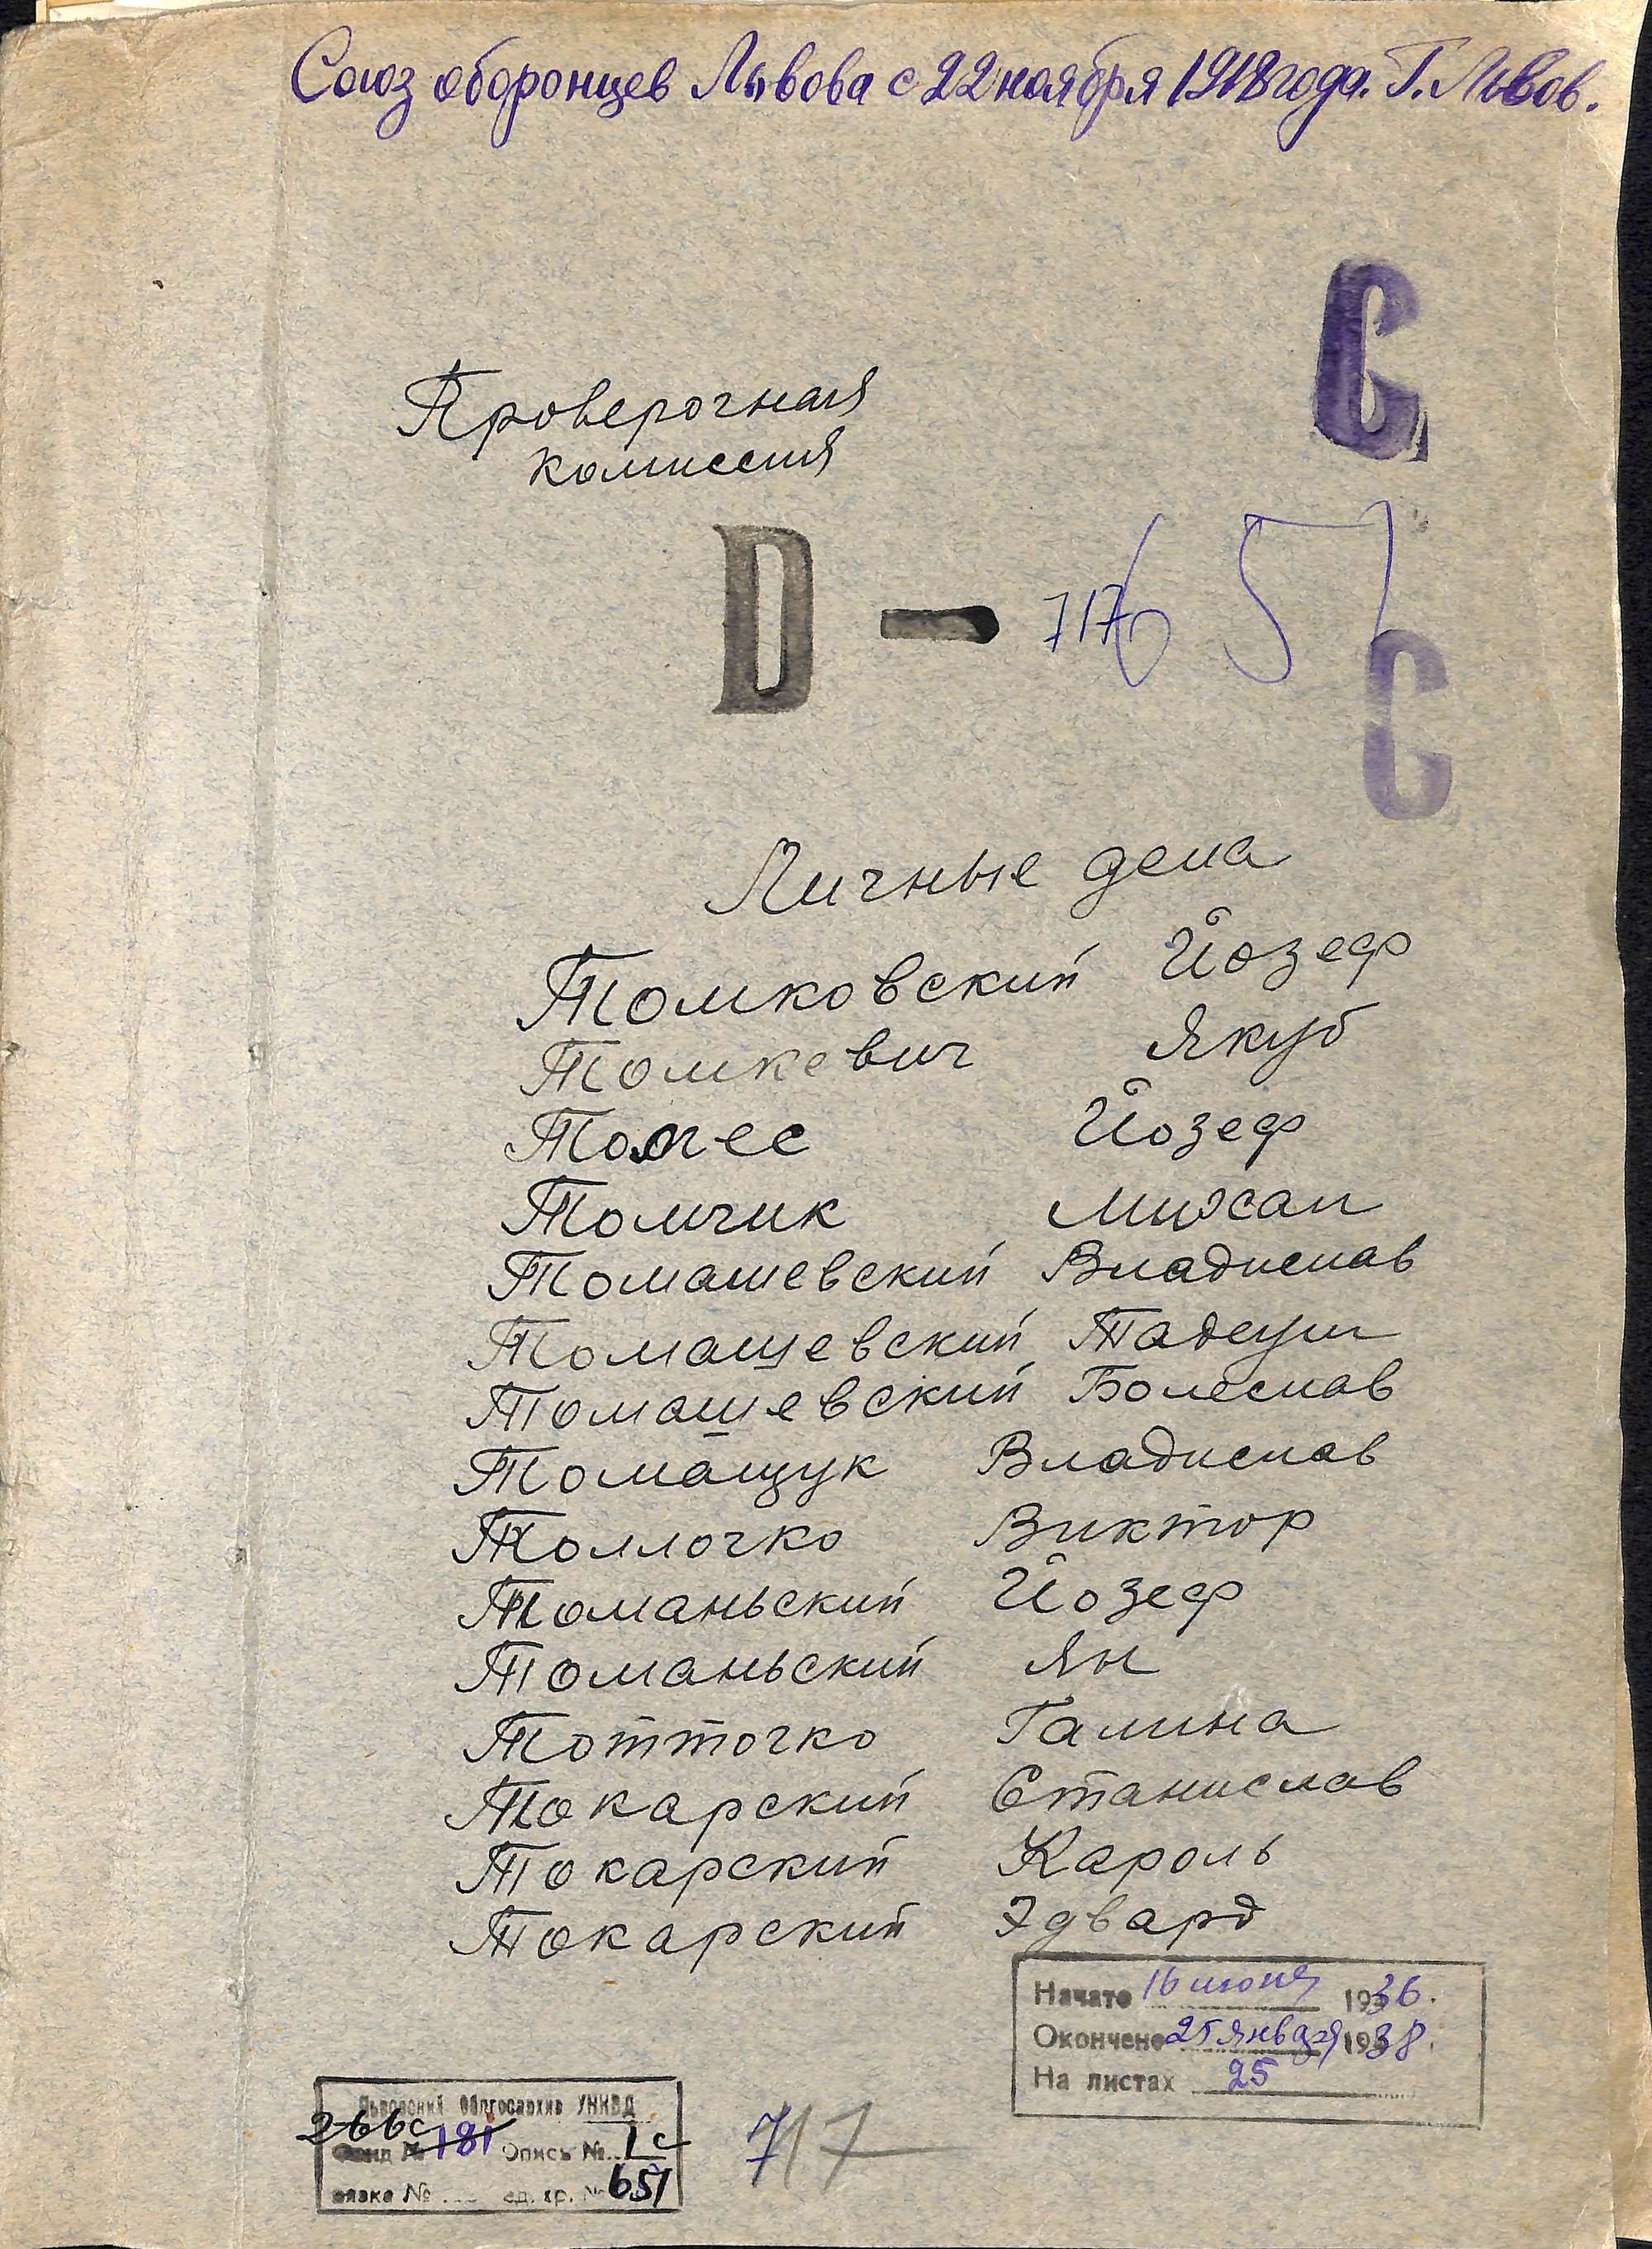 Союз оборонцев Львова с 22 ноября 1918 года. Г. Львов.
С
Проверочная
комиссия
D - 717 651
С
Личные дела
Томковский Йозеф
Томкевич Якуб
Йозеф
Томчик Михал
Томашевский Владислав
Томашевский Тадеуш
Томашевский Болеслав
Томащук Владислав
Толлочко Виктор
Томаньский Йозеф
Томаньский Ян
Тотточко Галина
Токарский Станислав
Токарский Кароль
Токарский Эдвард
Начато 16 июня 1936.
Окончено 25 января 1938.
На листах 25
Львовский Облгосархив УНКВД
266с
Фонд № 181 Опись № 1с
вязка № ед. хр. № 651
717